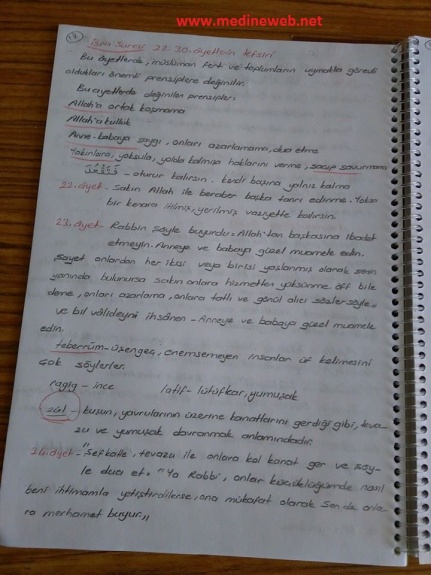 www.medineweb.net
İsra Suresi 22-30. âyetlerin tefsiri
Bu âyetlerde, müslüman fert ve toplumların uymakla görevli
oldukları önemli prensiplere değinilir.
Bu ayetlerde değinilen prensipler:
Allah'a ortak koşmama
Allah'a kulluk
Anne-babaya saygı, onları azarlamama, dua etme
Yakınlara, yoksula, yolda kalmışa haklarını verme, saçıp savurmama
فَتَقْعُدَ - oturur kalırsın. kendi başına yalnız kalma
22. âyet - Sakın Allah ile beraber başka tanrı edinme. Yoksa
bir kenara itilmiş, yerilmiş vaziyette kalırsın.
23. âyet - Rabbin şöyle buyurdu: Allah'tan başkasına ibadet
etmeyin. Anneye ve babaya güzel muamele edin.
Şayet onlardan her ikisi veya birisi yaşlanmış olarak senin
yanında bulunursa sakın onlara hizmetten yüksünme. öff bile
deme, onları azarlama, onlara tatlı ve gönül alıcı sözler söyle.
ve bil vâlideyni ihsânen - Anneye ve babaya güzel muamele
edin.
teberrüm - üşengeç, önemsemeyen insanlar üf kelimesini
çok söylerler.
ragig - ince latif - lütüfkar, yumuşak
zül - kuşun, yavrularının üzerine kanatlarını gerdiği gibi, teva-
zu ve yumuşak davranmak anlamındadır.
24. âyet - "Şefkatle, tevazu ile onlara kol kanat ger ve şöy-
le dua et. "Ya Rabbi, onlar küçüklüğümde nasıl
beni ihtimamla yetiştirdilerse, ona mükafat olarak Sen de onla-
ra merhamet buyur,,